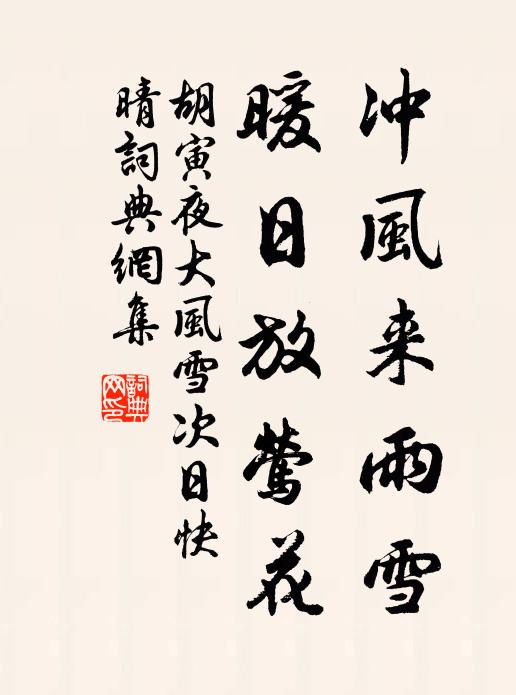 冲風来雨雪
暖日放鶯花
胡寅夜大風雪次日快
晴詞典網集
詞典
网印